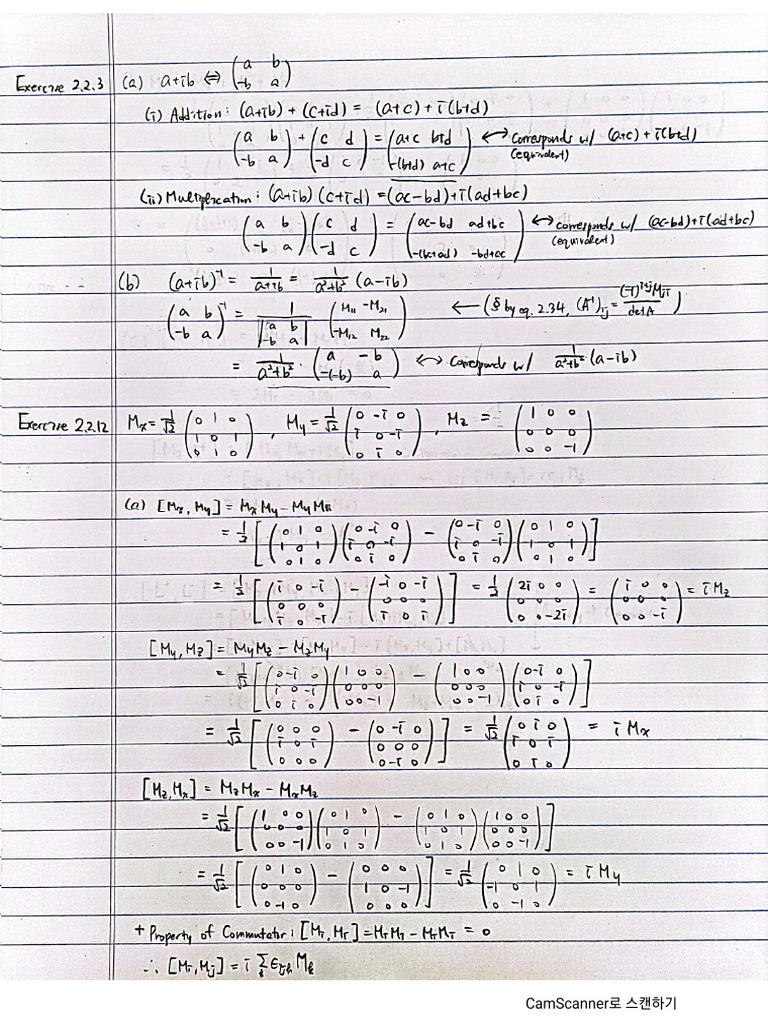 Exercise 2.2.3 (a) a+ib ⇔ (a b; -b a)
(i) Addition: (a+ib) + (c+id) = (a+c) + i(b+d)
(a b; -b a) + (c d; -d c) = (a+c b+d; -(b+d) a+c) ↔ corresponds w/ (a+c) + i(b+d)
(equivalent)
(ii) Multiplication: (a+ib)(c+id) = (ac-bd)+i(ad+bc)
(a b; -b a)(c d; -d c) = (ac-bd ad+bc; -(bc+ad) -bd+ac) ↔ corresponds w/ (ac-bd)+i(ad+bc)
(equivalent)
(b) (a+ib)⁻¹ = 1/(a+ib) = 1/(a²+b²) (a-ib)
(a b; -b a)⁻¹ = 1/|a b; -b a| (M₁₁ -M₂₁; -M₁₂ M₂₂) ← (§ by eq. 2.34, (A⁻¹)ᵢⱼ = (-1)ⁱ⁺ʲMⱼᵢ/detA)
= 1/(a²+b²) · (a -b; -(-b) a) ↔ corresponds w/ 1/(a²+b²) (a-ib)
Exercise 2.2.12 Mx = 1/√2 (0 1 0; 1 0 1; 0 1 0), My = 1/√2 (0 -i 0; i 0 -i; 0 i 0), Mz = (1 0 0; 0 0 0; 0 0 -1)
(a) [Mx, My] = MxMy - MyMx
= 1/2 [(0 1 0; 1 0 1; 0 1 0)(0 -i 0; i 0 -i; 0 i 0) - (0 -i 0; i 0 -i; 0 i 0)(0 1 0; 1 0 1; 0 1 0)]
= 1/2 [(i 0 -i; 0 0 0; i 0 -i) - (-i 0 -i; 0 0 0; i 0 i)] = 1/2 (2i 0 0; 0 0 0; 0 0 -2i) = (i 0 0; 0 0 0; 0 0 -i) = iMz
[My, Mz] = MyMz - MzMy
= 1/√2 [(0 -i 0; i 0 -i; 0 i 0)(1 0 0; 0 0 0; 0 0 -1) - (1 0 0; 0 0 0; 0 0 -1)(0 -i 0; i 0 -i; 0 i 0)]
= 1/√2 [(0 0 0; i 0 i; 0 0 0) - (0 -i 0; 0 0 0; 0 -i 0)] = 1/√2 (0 i 0; i 0 i; 0 i 0) = iMx
[Mz, Mx] = MzMx - MxMz
= 1/√2 [(1 0 0; 0 0 0; 0 0 -1)(0 1 0; 1 0 1; 0 1 0) - (0 1 0; 1 0 1; 0 1 0)(1 0 0; 0 0 0; 0 0 -1)]
= 1/√2 [(0 1 0; 0 0 0; 0 -1 0) - (0 0 0; 1 0 -1; 0 0 0)] = 1/√2 (0 1 0; -1 0 1; 0 -1 0) = iMy
+ Property of Commutator: [Mi, Mi] = MiMi - MiMi = 0
∴ [Mi, Mj] = i Σₖ εᵢⱼₖ Mₖ
CamScanner로 스캔하기